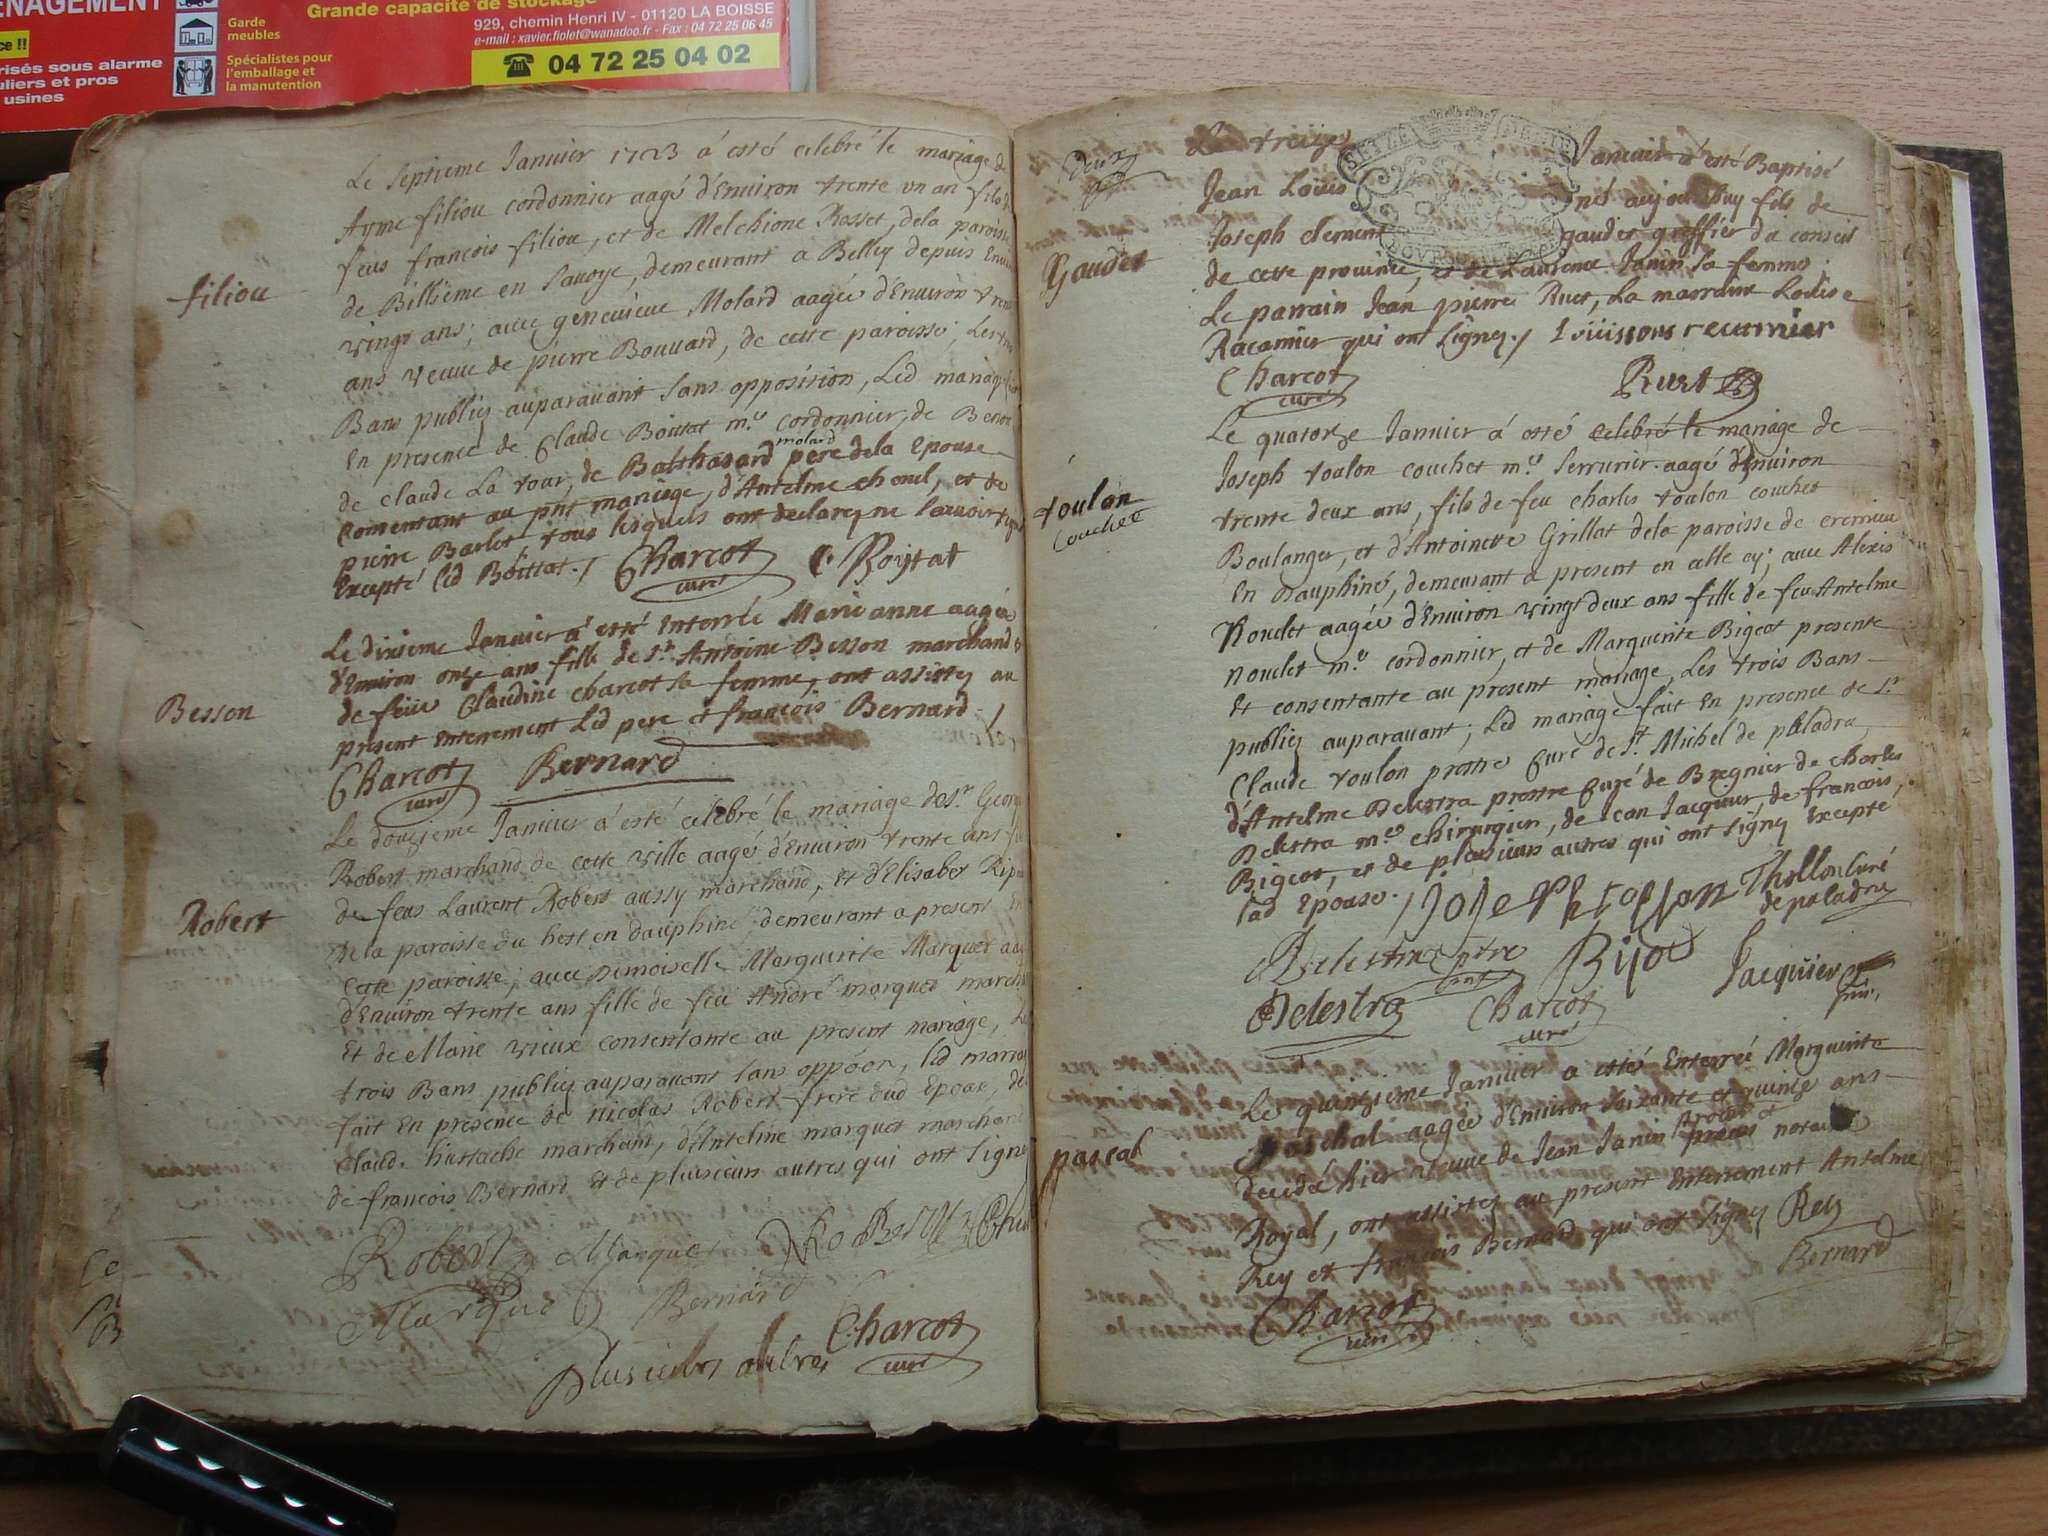 ENAGEMENT
Grande capacité de stockage
929, chemin Henri IV - 01120 LA BOISSE
e-mail : xavier.fiolet@wanadoo.fr - Fax : 04 72 25 06 45
☎ 04 72 25 04 02
Garde
meubles
Spécialistes pour
l'emballage et
la manutention
ce !!
risés sous alarme
uliers et pros
usines
Le septieme Janvier 1723 á esté celebré le mariage de
Ayme filiou cordonnier aagé d'Environ trente un an fils de
feus françois filiou, et de Melchione Rosset, dela paroisse
de Billieme en Savoye, demeurant a Belley depuis Environ
vingt ans; avec genevieve Molard aagée d'Environ trente
ans veuve de pierre Bouvard, de cette paroisse, Les trois
Bans publiez auparavant sans opposition, Led mariage
En presence de Claude Boittat m.e cordonnier, de Benoit
de claude La tour, de Balthasard molard pere dela Epouse
Consentant au pnt mariage, d'Antelme chomel, et de
pierre Barlet tous lesquels ont declarez ne sçavoir signer
Excepté led Boittat./ Charcot curé C. Boytat
filiou
Le dixieme Janvier á esté Enterrée Marianne aagée
d'Environ onze ans fille de S.r Antoine Besson marchand et
de feüe Claudine charcot sa femme, ont assistez au
present enterrement Led pere et françois Bernard./
Besson
Charcot curé Bernard
Le douzieme Janvier á esté celebré le mariage de S.r George
Robert marchand de cette ville aagé d'Environ trente ans fils
de feus Laurent Robert aussy marchand, et d'Elisabet
dela paroisse du hest en dauphiné, demeurant a present en
cette paroisse; avec Demoiselle Marguerite Marquet aagée
d'Environ trente ans fille de feu André marquet marchand
Et de Marie vieux consentante au present mariage, Les
trois Bans publiez auparavant sans oppóon, led mariage
fait En presence de nicolas Robert frere dud Epoux, de
Claude hustache marchant, d'Antelme marquet marchand
de françois Bernard et de plusieurs autres qui ont signez
Robert
Robert Marquet Robert
Marquet Bernard
plusieurs autres Charcot curé
deux
Le treize Janvier á esté Baptisé
Jean Louis né aujourdhuy fils de
Joseph clement gaudet greffier du conseil
de cette province, et de Laurence Janin sa femme.
Le parrain Jean pierre Rust, La marraine Louise
Racamier qui ont signez./
Gaudet
Charcot curé Rust
Le quatorze Janvier á esté celebré le mariage de
Joseph toulon couchet m.e serrurier aagé d'Environ
trente deux ans, fils de feu charles toulon couchet
Boulanger, et d'Antoinette Grillat dela paroisse de cremieu
En Dauphiné, demeurant a present en celle cy; avec Alexis
Noudet aagée d'Environ vingt deux ans fille de feu Antelme
noudet m.e cordonnier, et de Marguerite Bigeot presente
Et consentante au present mariage, Les trois Bans
publiez auparavant; Led mariage fait En presence de S.r
Claude toulon prestre Curé de S.t Michel de paladru
d'Antelme Delestra prestre Curé de Bregnier de charles
Delestra m.e chirurgien, de Jean Jacquier, de francois
Bigeot, et de plusieurs autres qui ont signez Excepté
lad Epouse./
toulon
couchet
Thollon Curé
de paladru
Delestra ptre Bijot Jacquier
Delestra Charcot curé
Le quinzieme Janvier a esté Enterrée Marguerite
paschal aagée d'Environ soixante et quinze ans
decedée hier veuve de Jean Janin notaire
Royal, ont assistez au present Enterrement Antelme
Rey et françois Bernard qui ont signez Rey
pascal
Charcot curé Bernard